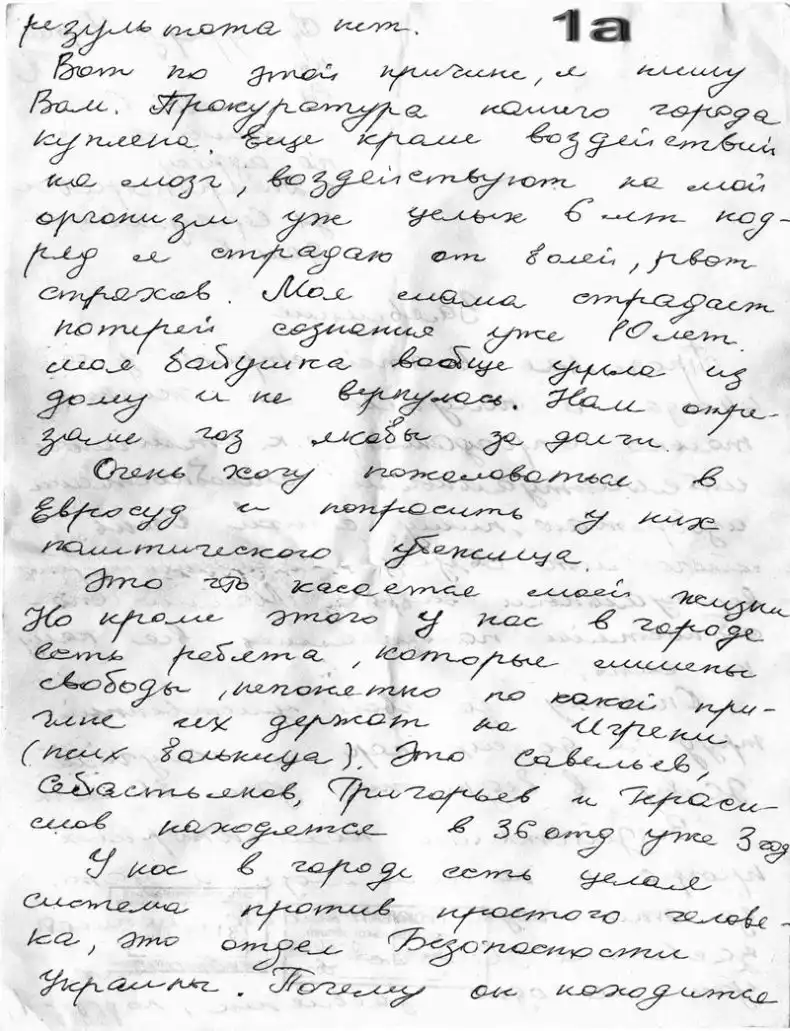 1а
результата нет.
Вот по этой причине, я пишу
Вам. Прокуратура нашего города
куплена. Еще кроме воздействий
на мозг, воздействуют на мой
организм уже целых 6 лет под-
ряд я страдаю от болей, рвот
страхов. Моя мама страдает
потерей сознания уже 10 лет.
моя бабушка вообще ушла из
дому и не вернулась. Нам отре-
зали газ якобы за долги.
Очень хочу пожаловаться в
Евросуд и попросить у них
политического убежища.
Это что касается моей жизни
Но кроме этого у нас в городе
есть ребята, которые лишены
свободы, непонятно по какой при-
чине их держат на Игрени
(псих больница). Это Савельев,
Себастьянов, Григорьев и
находятся в 36 отд уже 3 год
У нас в городе есть целая
система против простого челове-
ка, это отдел Безопасности
Украины. Почему он находится